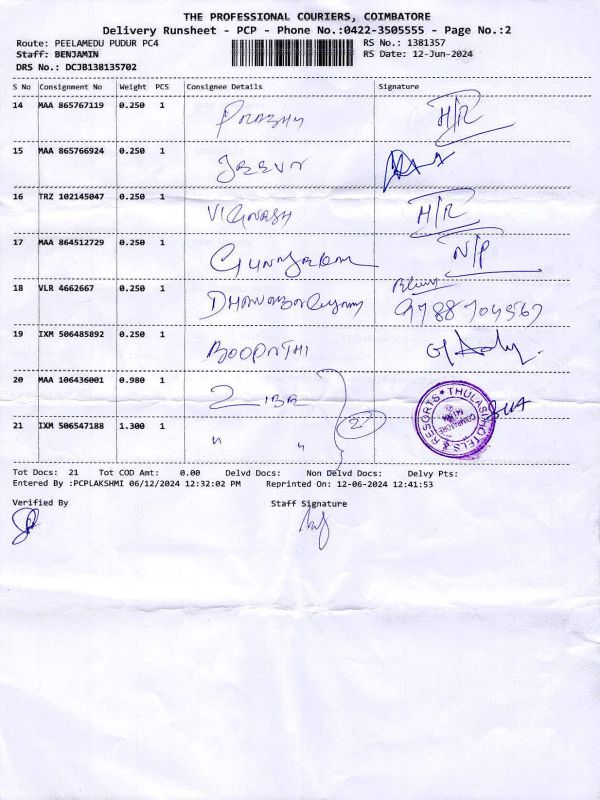 THE PROFESSIONAL COURIERS, COIMBATORE
Delivery Runsheet - PCP - Phone No.:0422-3505555 - Page No.:2
Route: PEELAMEDU PUDUR PC4 RS No.: 1381357
Staff: BENJAMIN RS Date: 12-Jun-2024
DRS No.: DCJB138135702
S No Consignment No Weight PCS Consignee Details Signature
14 MAA 865767119 0.250 1 PRABHU H/R
15 MAA 865766924 0.250 1
16 TRZ 102145047 0.250 1 VIGNASH H/R
17 MAA 864512729 0.250 1 N/P
18 VLR 4662667 0.250 1
19 IXM 506485892 0.250 1 BOOPATHI
20 MAA 106436001 0.980 1
21 IXM 506547188 1.300 1 " " 2
THULASI HOTELS & RESORTS
COIMBATORE
Tot Docs: 21 Tot COD Amt: 0.00 Delvd Docs: Non Delvd Docs: Delvy Pts:
Entered By :PCPLAKSHMI 06/12/2024 12:32:02 PM Reprinted On: 12-06-2024 12:41:53
Verified By Staff Signature